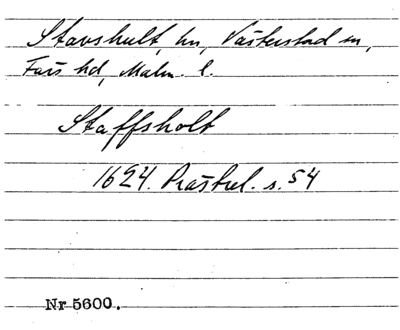 Stavshult, hn, Västerstad sn,
Färs hd, Malm. l.
Staffsholt
1624. Prästrel. s. 54
Nr 5600.